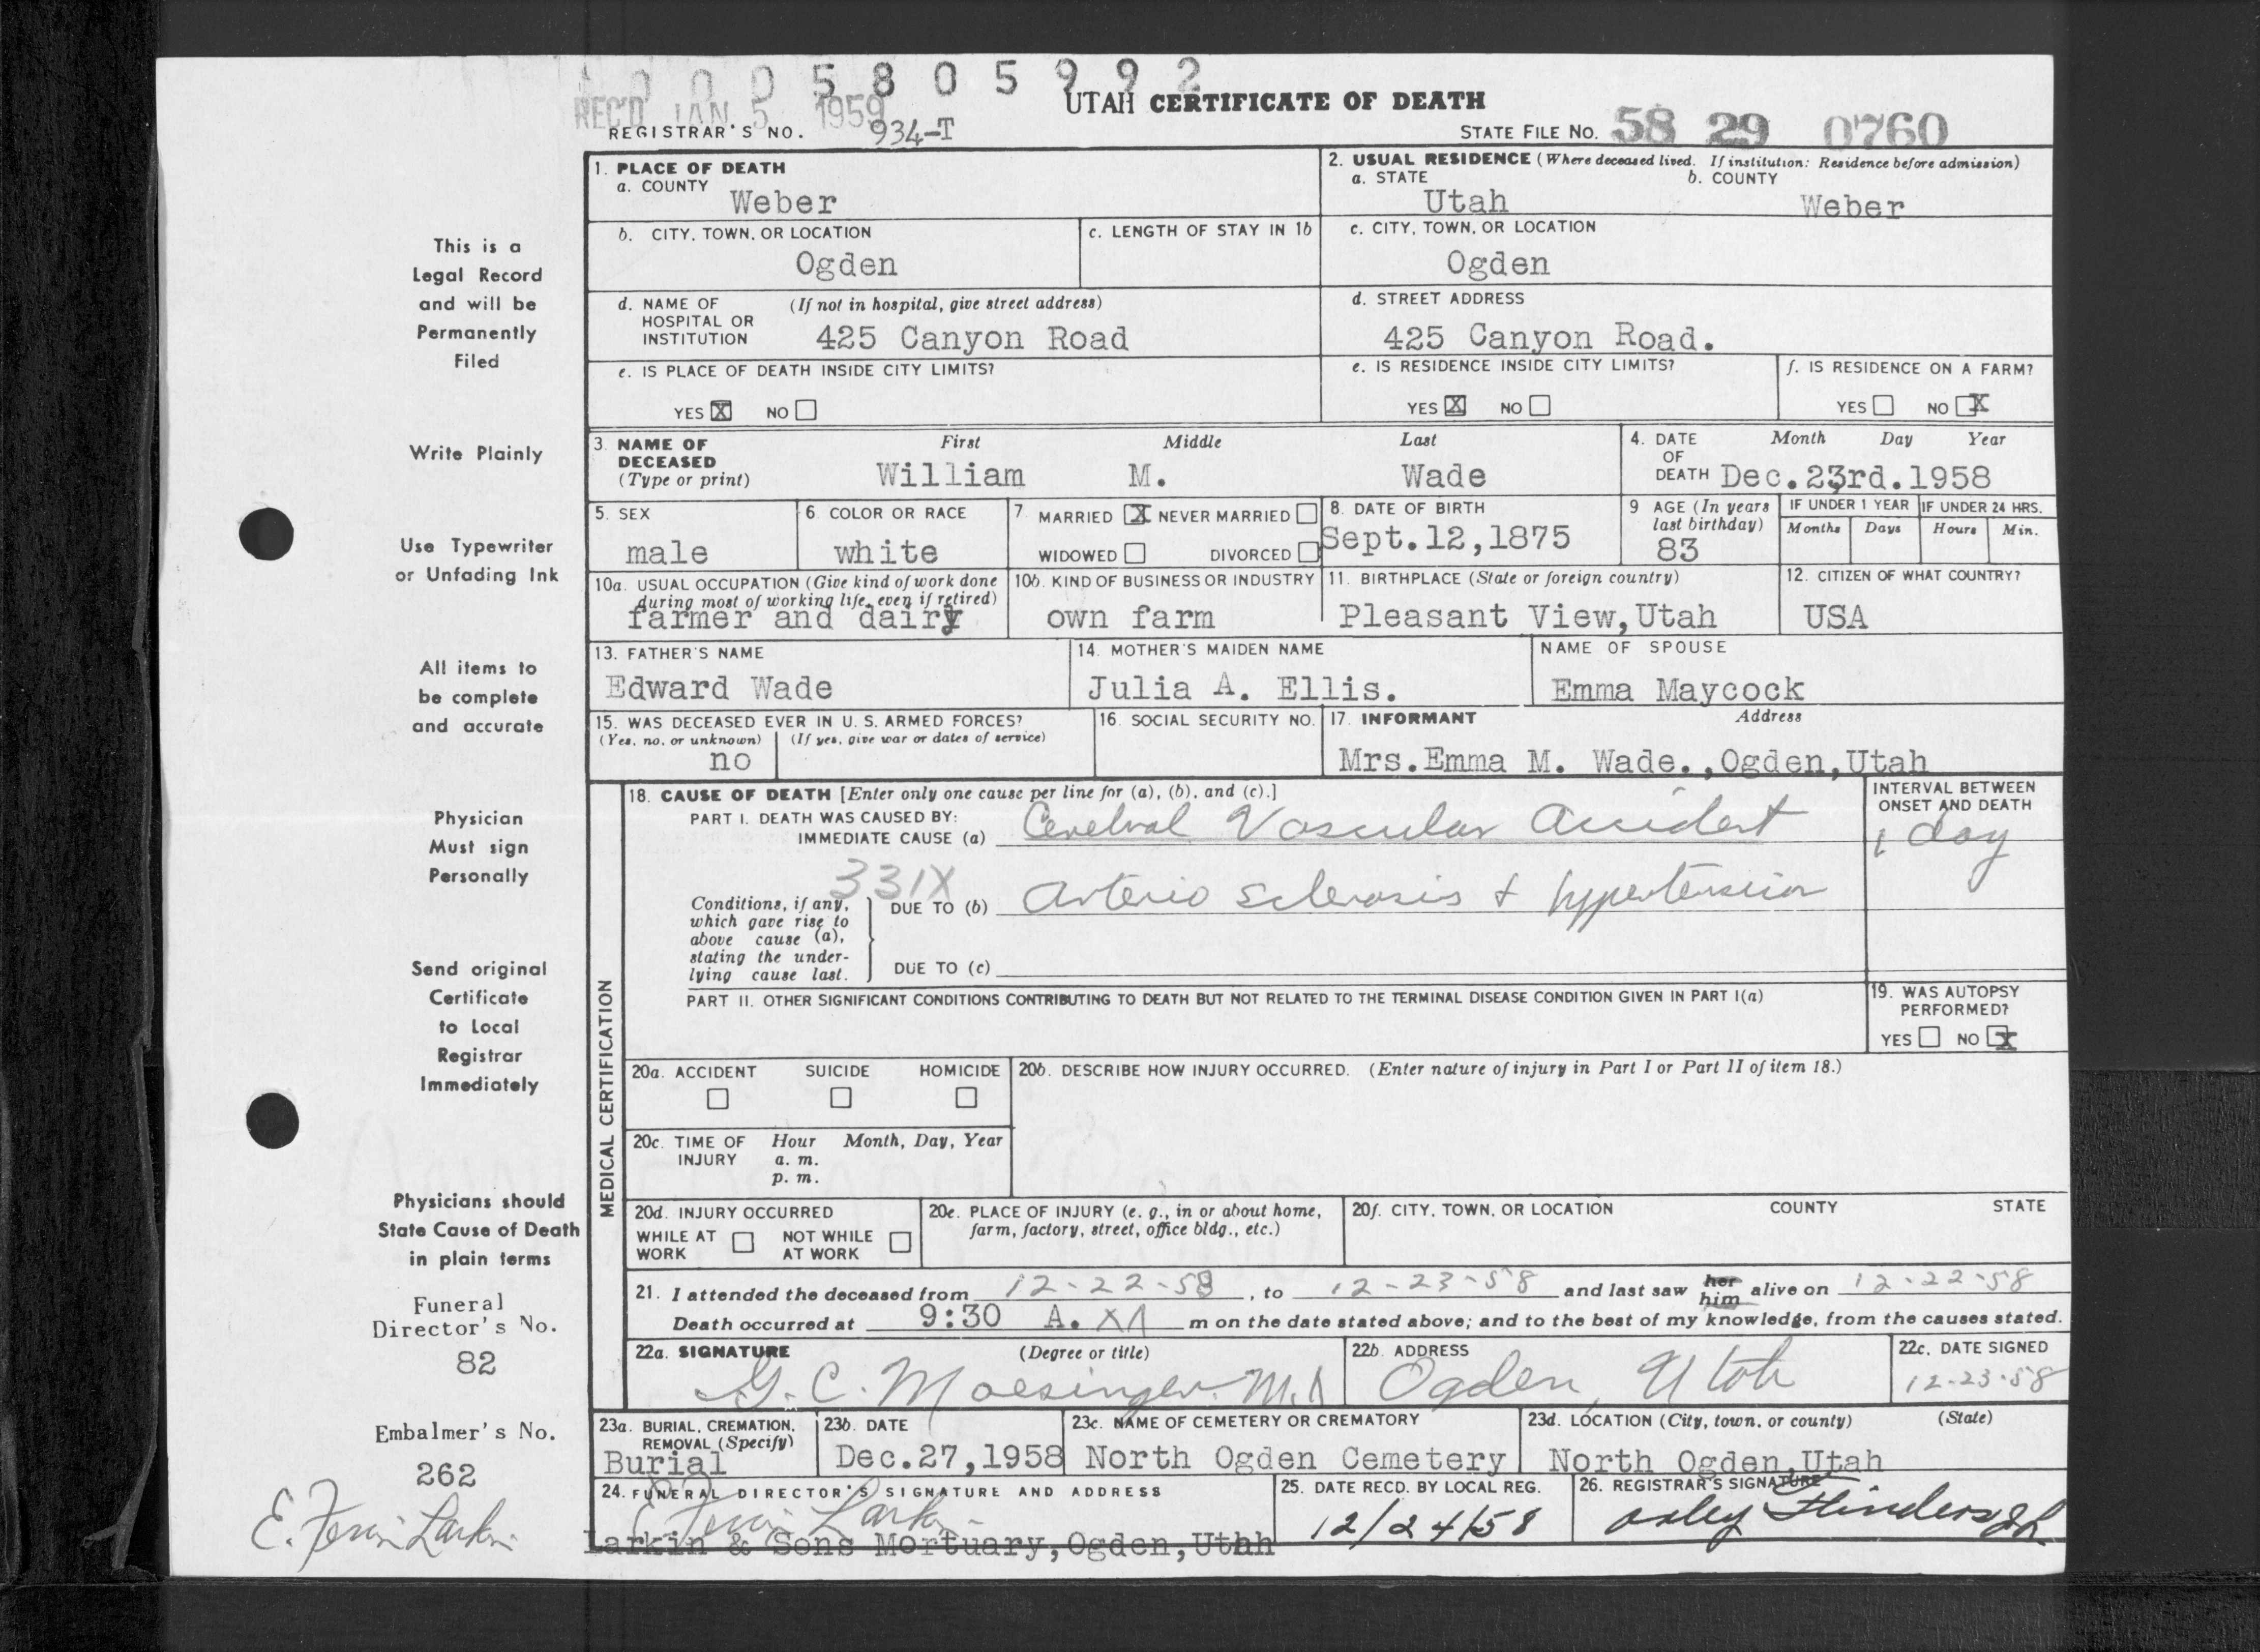 0 0 0 5 8 0 5 9 9 2
REC'D JAN 5 1959
UTAH CERTIFICATE OF DEATH
REGISTRAR'S NO. 934-T
STATE FILE NO. 58 29 0760
1. PLACE OF DEATH
a. COUNTY
Weber
2. USUAL RESIDENCE (Where deceased lived. If institution: Residence before admission)
a. STATE b. COUNTY
Utah Weber
b. CITY, TOWN, OR LOCATION
Ogden
c. LENGTH OF STAY IN 1b
c. CITY, TOWN, OR LOCATION
Ogden
d. NAME OF HOSPITAL OR INSTITUTION (If not in hospital, give street address)
425 Canyon Road
d. STREET ADDRESS
425 Canyon Road.
e. IS PLACE OF DEATH INSIDE CITY LIMITS?
YES X NO
e. IS RESIDENCE INSIDE CITY LIMITS?
YES X NO
f. IS RESIDENCE ON A FARM?
YES NO X
3. NAME OF DECEASED (Type or print)
First Middle Last
William M. Wade
4. DATE OF DEATH
Month Day Year
Dec.23rd.1958
5. SEX
male
6. COLOR OR RACE
white
7 MARRIED X NEVER MARRIED
WIDOWED DIVORCED
8. DATE OF BIRTH
Sept.12,1875
9 AGE (In years last birthday)
83
IF UNDER 1 YEAR
Months Days
IF UNDER 24 HRS.
Hours Min.
10a. USUAL OCCUPATION (Give kind of work done during most of working life, even if retired)
farmer and dairy
10b. KIND OF BUSINESS OR INDUSTRY
own farm
11. BIRTHPLACE (State or foreign country)
Pleasant View,Utah
12. CITIZEN OF WHAT COUNTRY?
USA
13. FATHER'S NAME
Edward Wade
14. MOTHER'S MAIDEN NAME
Julia A. Ellis.
NAME OF SPOUSE
Emma Maycock
15. WAS DECEASED EVER IN U. S. ARMED FORCES?
(Yes, no, or unknown) (If yes, give war or dates of service)
no
16. SOCIAL SECURITY NO.
17. INFORMANT Address
Mrs.Emma M. Wade.,Ogden,Utah
MEDICAL CERTIFICATION
18. CAUSE OF DEATH [Enter only one cause per line for (a), (b), and (c).]
PART I. DEATH WAS CAUSED BY:
IMMEDIATE CAUSE (a) Cerebral Vascular Accident
INTERVAL BETWEEN ONSET AND DEATH
1 day
331X
Conditions, if any, which gave rise to above cause (a), stating the underlying cause last.
DUE TO (b) Arterio Sclerosis + hypertension
DUE TO (c)
PART II. OTHER SIGNIFICANT CONDITIONS CONTRIBUTING TO DEATH BUT NOT RELATED TO THE TERMINAL DISEASE CONDITION GIVEN IN PART I(a)
19. WAS AUTOPSY PERFORMED?
YES NO X
20a. ACCIDENT SUICIDE HOMICIDE
20b. DESCRIBE HOW INJURY OCCURRED. (Enter nature of injury in Part I or Part II of item 18.)
20c. TIME OF INJURY Hour Month, Day, Year
a. m.
p. m.
20d. INJURY OCCURRED
WHILE AT WORK NOT WHILE AT WORK
20e. PLACE OF INJURY (e. g., in or about home, farm, factory, street, office bldg., etc.)
20f. CITY, TOWN, OR LOCATION COUNTY STATE
21. I attended the deceased from 12-22-58, to 12-23-58 and last saw her him alive on 12-22-58
Death occurred at 9:30 A. m on the date stated above; and to the best of my knowledge, from the causes stated.
22a. SIGNATURE (Degree or title)
G. C. Moesinger M.D
22b. ADDRESS
Ogden, Utah
22c. DATE SIGNED
12-23-58
23a. BURIAL, CREMATION, REMOVAL (Specify)
Burial
23b. DATE
Dec.27,1958
23c. NAME OF CEMETERY OR CREMATORY
North Ogden Cemetery
23d. LOCATION (City, town, or county) (State)
North Ogden,Utah
24. FUNERAL DIRECTOR'S SIGNATURE AND ADDRESS
E. Larkin
Larkin & Sons Mortuary,Ogden,Utah
25. DATE RECD. BY LOCAL REG.
12/24/58
26. REGISTRAR'S SIGNATURE
Flinders
This is a
Legal Record
and will be
Permanently
Filed
Write Plainly
Use Typewriter
or Unfading Ink
All items to
be complete
and accurate
Physician
Must sign
Personally
Send original
Certificate
to Local
Registrar
Immediately
Physicians should
State Cause of Death
in plain terms
Funeral
Director's No.
82
Embalmer's No.
262
E. Larkin